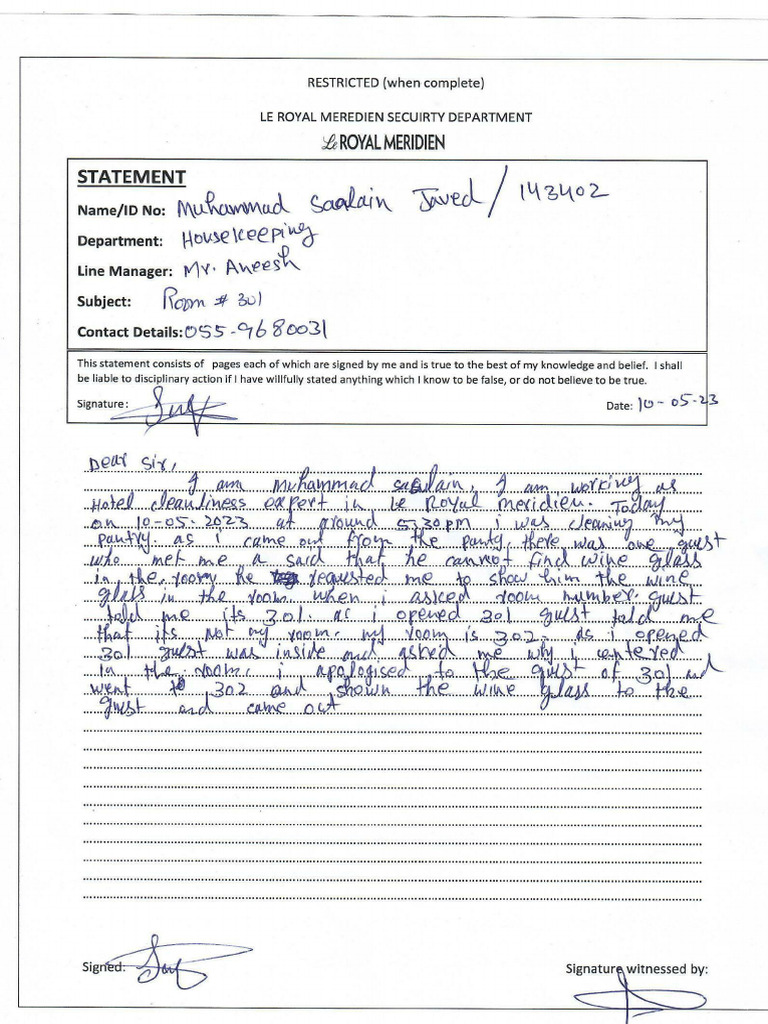 RESTRICTED (when complete)
LE ROYAL MEREDIEN SECUIRTY DEPARTMENT
Le ROYAL MERIDIEN
STATEMENT
Name/ID No: Muhammad Saalain Javed / 143402
Department: Housekeeping
Line Manager: Mr. Aneesh
Subject: Room # 301
Contact Details: 055-9680031
This statement consists of pages each of which are signed by me and is true to the best of my knowledge and belief. I shall
be liable to disciplinary action if I have willfully stated anything which I know to be false, or do not believe to be true.
Signature: Date: 10-05-23
Dear Sir,
I am Muhammad saalain. I am working as
Hotel cleanliness expert in Le Royal meridien. Today
on 10-05-2023 at around 5:30pm i was cleaning my
pantry. as i came out from the panty, there was one guest
who met me a said that he cannot find wine glass
in the room, he requested me to show him the wine
glass in the room. when i asked room number. guest
told me its 301. as i opened 301 guest told me
that its not my room. my room is 302. as i opened
301 guest was inside and asked me why i entered
in the room. i apologised to the guest of 301 and
went to 302 and shown the wine glass to the
guest and came out
Signed: Signature witnessed by: